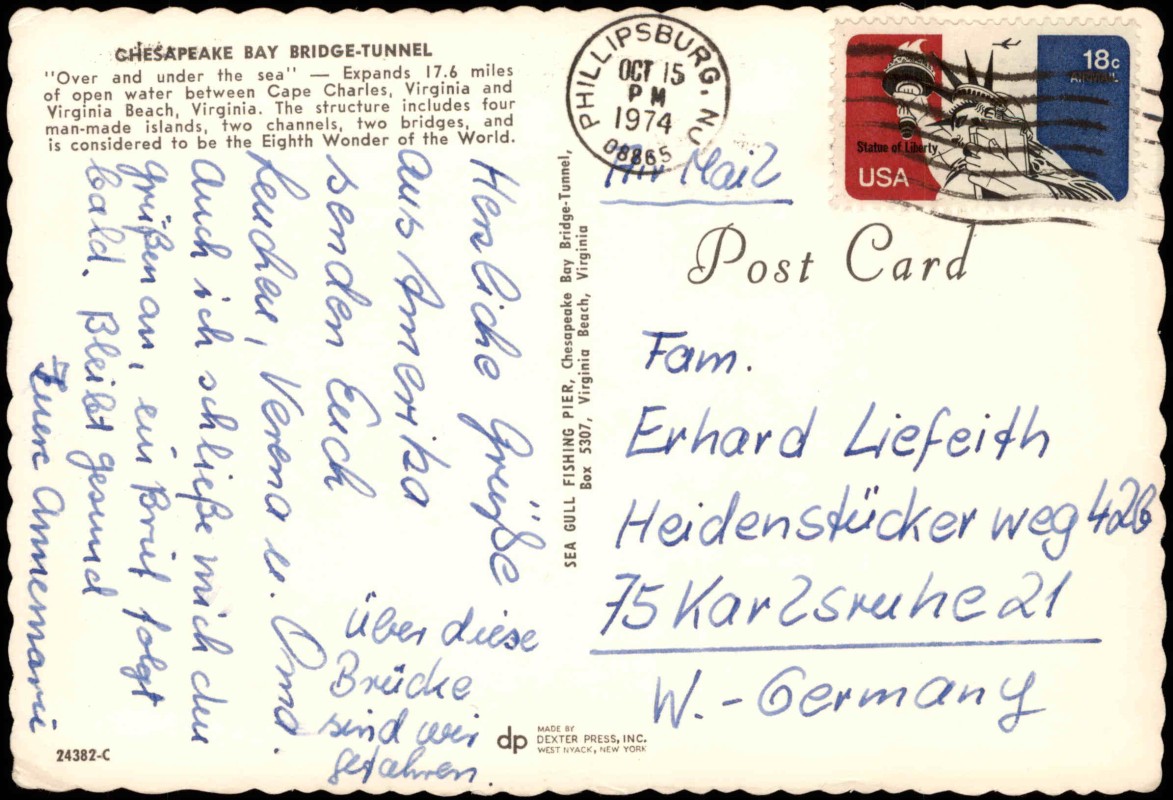 CHESAPEAKE BAY BRIDGE-TUNNEL
"Over and under the sea" — Expands 17.6 miles
of open water between Cape Charles, Virginia and
Virginia Beach, Virginia. The structure includes four
man-made islands, two channels, two bridges, and
is considered to be the Eighth Wonder of the World.
Herzliche Grüße
aus Amerika
senden Euch
Verena u. Oma.
Auch ich schließe mich den
Grüßen an, ein Brief folgt
bald. Bleibt gesund
Eure Annemarie
Über diese
Brücke
sind wir
gefahren.
24382-C
SEA GULL FISHING PIER, Chesapeake Bay Bridge-Tunnel,
Box 5307, Virginia Beach, Virginia
dp
MADE BY
DEXTER PRESS, INC.
WEST NYACK, NEW YORK
PHILLIPSBURG, NJ
OCT 15
PM
1974
08865
18c
Statue of Liberty
USA
Mail
Post Card
Fam.
Erhard Liefeith
Heidenstückerweg 42b
75 Karlsruhe 21
W.-Germany